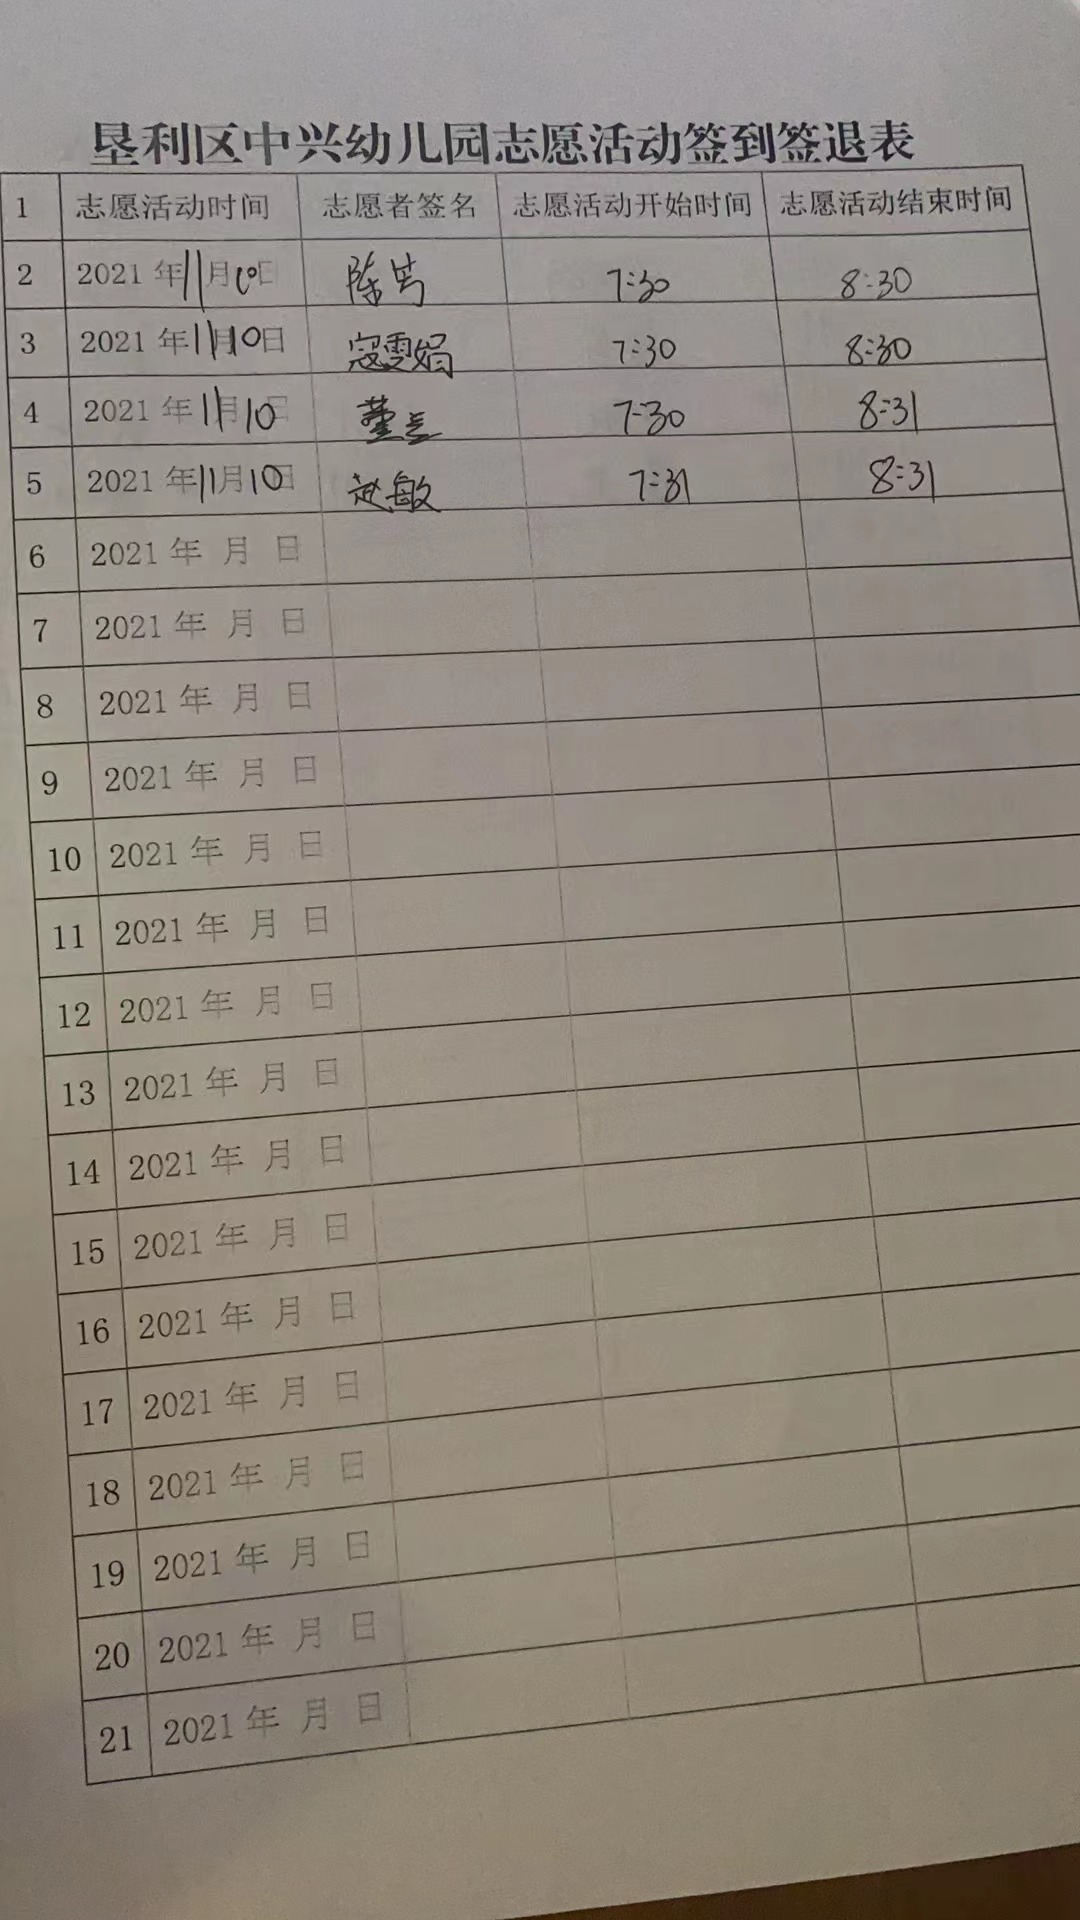 垦利区中兴幼儿园志愿活动签到签退表
1 志愿活动时间 志愿者签名 志愿活动开始时间 志愿活动结束时间
2 2021年11月10日 陈 7:30 8:30
3 2021年11月10日 寇雯娟 7:30 8:30
4 2021年11月10日 董 7:30 8:31
5 2021年11月10日 赵敏 7:31 8:31
6 2021年 月 日
7 2021年 月 日
8 2021年 月 日
9 2021年 月 日
10 2021年 月 日
11 2021年 月 日
12 2021年 月 日
13 2021年 月 日
14 2021年 月 日
15 2021年 月 日
16 2021年 月 日
17 2021年 月 日
18 2021年 月 日
19 2021年 月 日
20 2021年 月 日
21 2021年 月 日